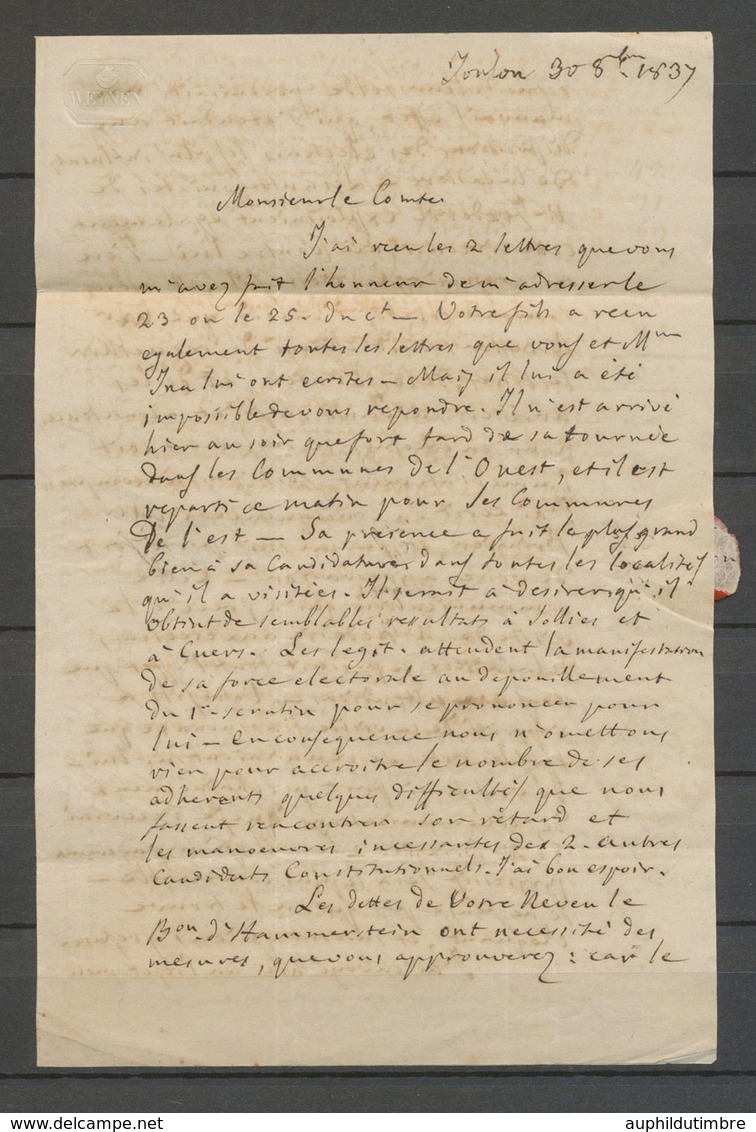 WEYNEN
Toulon 30 8bre 1837
Monsieur le Comte
J'ai recu les 2 lettres que vous
m'avez fait l'honneur de m'adresser le
23 ou le 25. du ct — Votre fils a recu
egalement toutes les lettres que vous et Mme
Ina lui ont ecrites — Mais il lui a été
impossible de vous repondre. Il n'est arrivé
hier au soir que fort tard de sa tournée
dans les Communes de l'Ouest, et il est
reparti ce matin pour les Communes
De l'est — Sa présence a fait le plus grand
bien à sa Candidature dans toutes les localités
qu'il a visitées. Il serait à desirer qu'il
obtint de semblables resultats à Sollies et
à Cuers. Les legit. attendent la manifestation
de sa force electorale au depouillement
du 1r scrutin pour se prononcer pour
lui — en consequence nous n'omettons
rien pour accroitre le nombre de ses
adherents quelques difficultés que nous
fassent rencontrer son retard et
les manoeuvres incessantes des 2. autres
Candidats Constitutionnels. J'ai bon espoir.
Les dettes de Votre Neveu le
Bon d'Hammerstein ont necessité des
mesures, que vous approuverez : car le
auphildutimbre